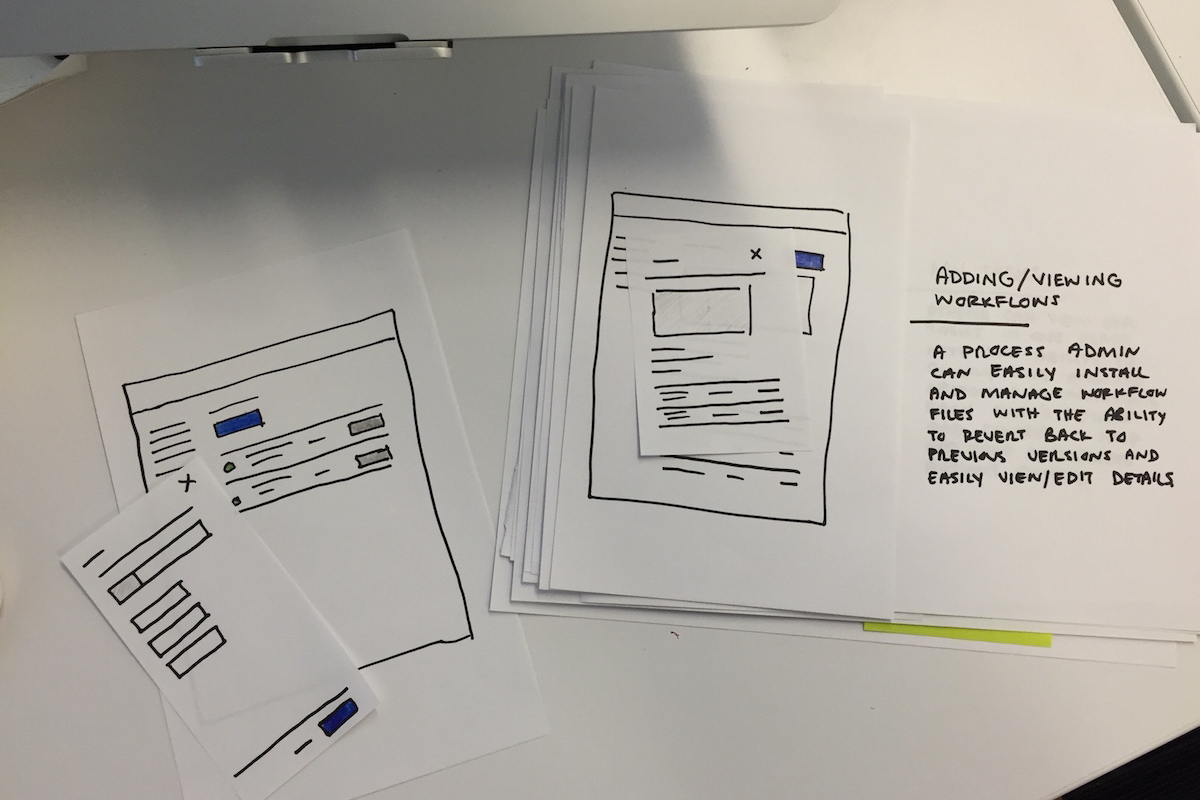 ADDING/VIEWING
WORKFLOWS
A PROCESS ADMIN
CAN EASILY INSTALL
AND MANAGE WORKFLOW
FILES WITH THE ABILITY
TO REVERT BACK TO
PREVIOUS VERSIONS AND
EASILY VIEW/EDIT DETAILS
X
X